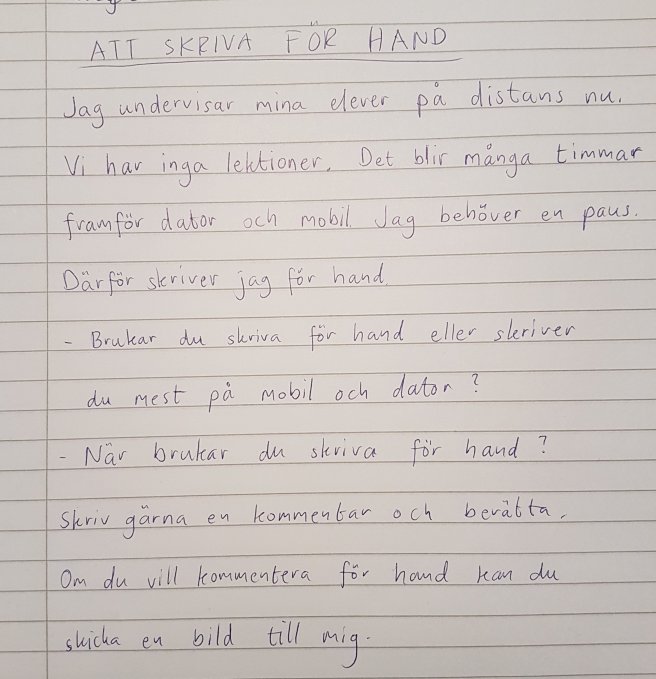 ATT SKRIVA FÖR HAND
Jag undervisar mina elever på distans nu.
Vi har inga lektioner. Det blir många timmar
framför dator och mobil. Jag behöver en paus.
Därför skriver jag för hand.
- Brukar du skriva för hand eller skriver
du mest på mobil och dator?
- När brukar du skriva för hand?
Skriv gärna en kommentar och berätta.
Om du vill kommentera för hand kan du
skicka en bild till mig.